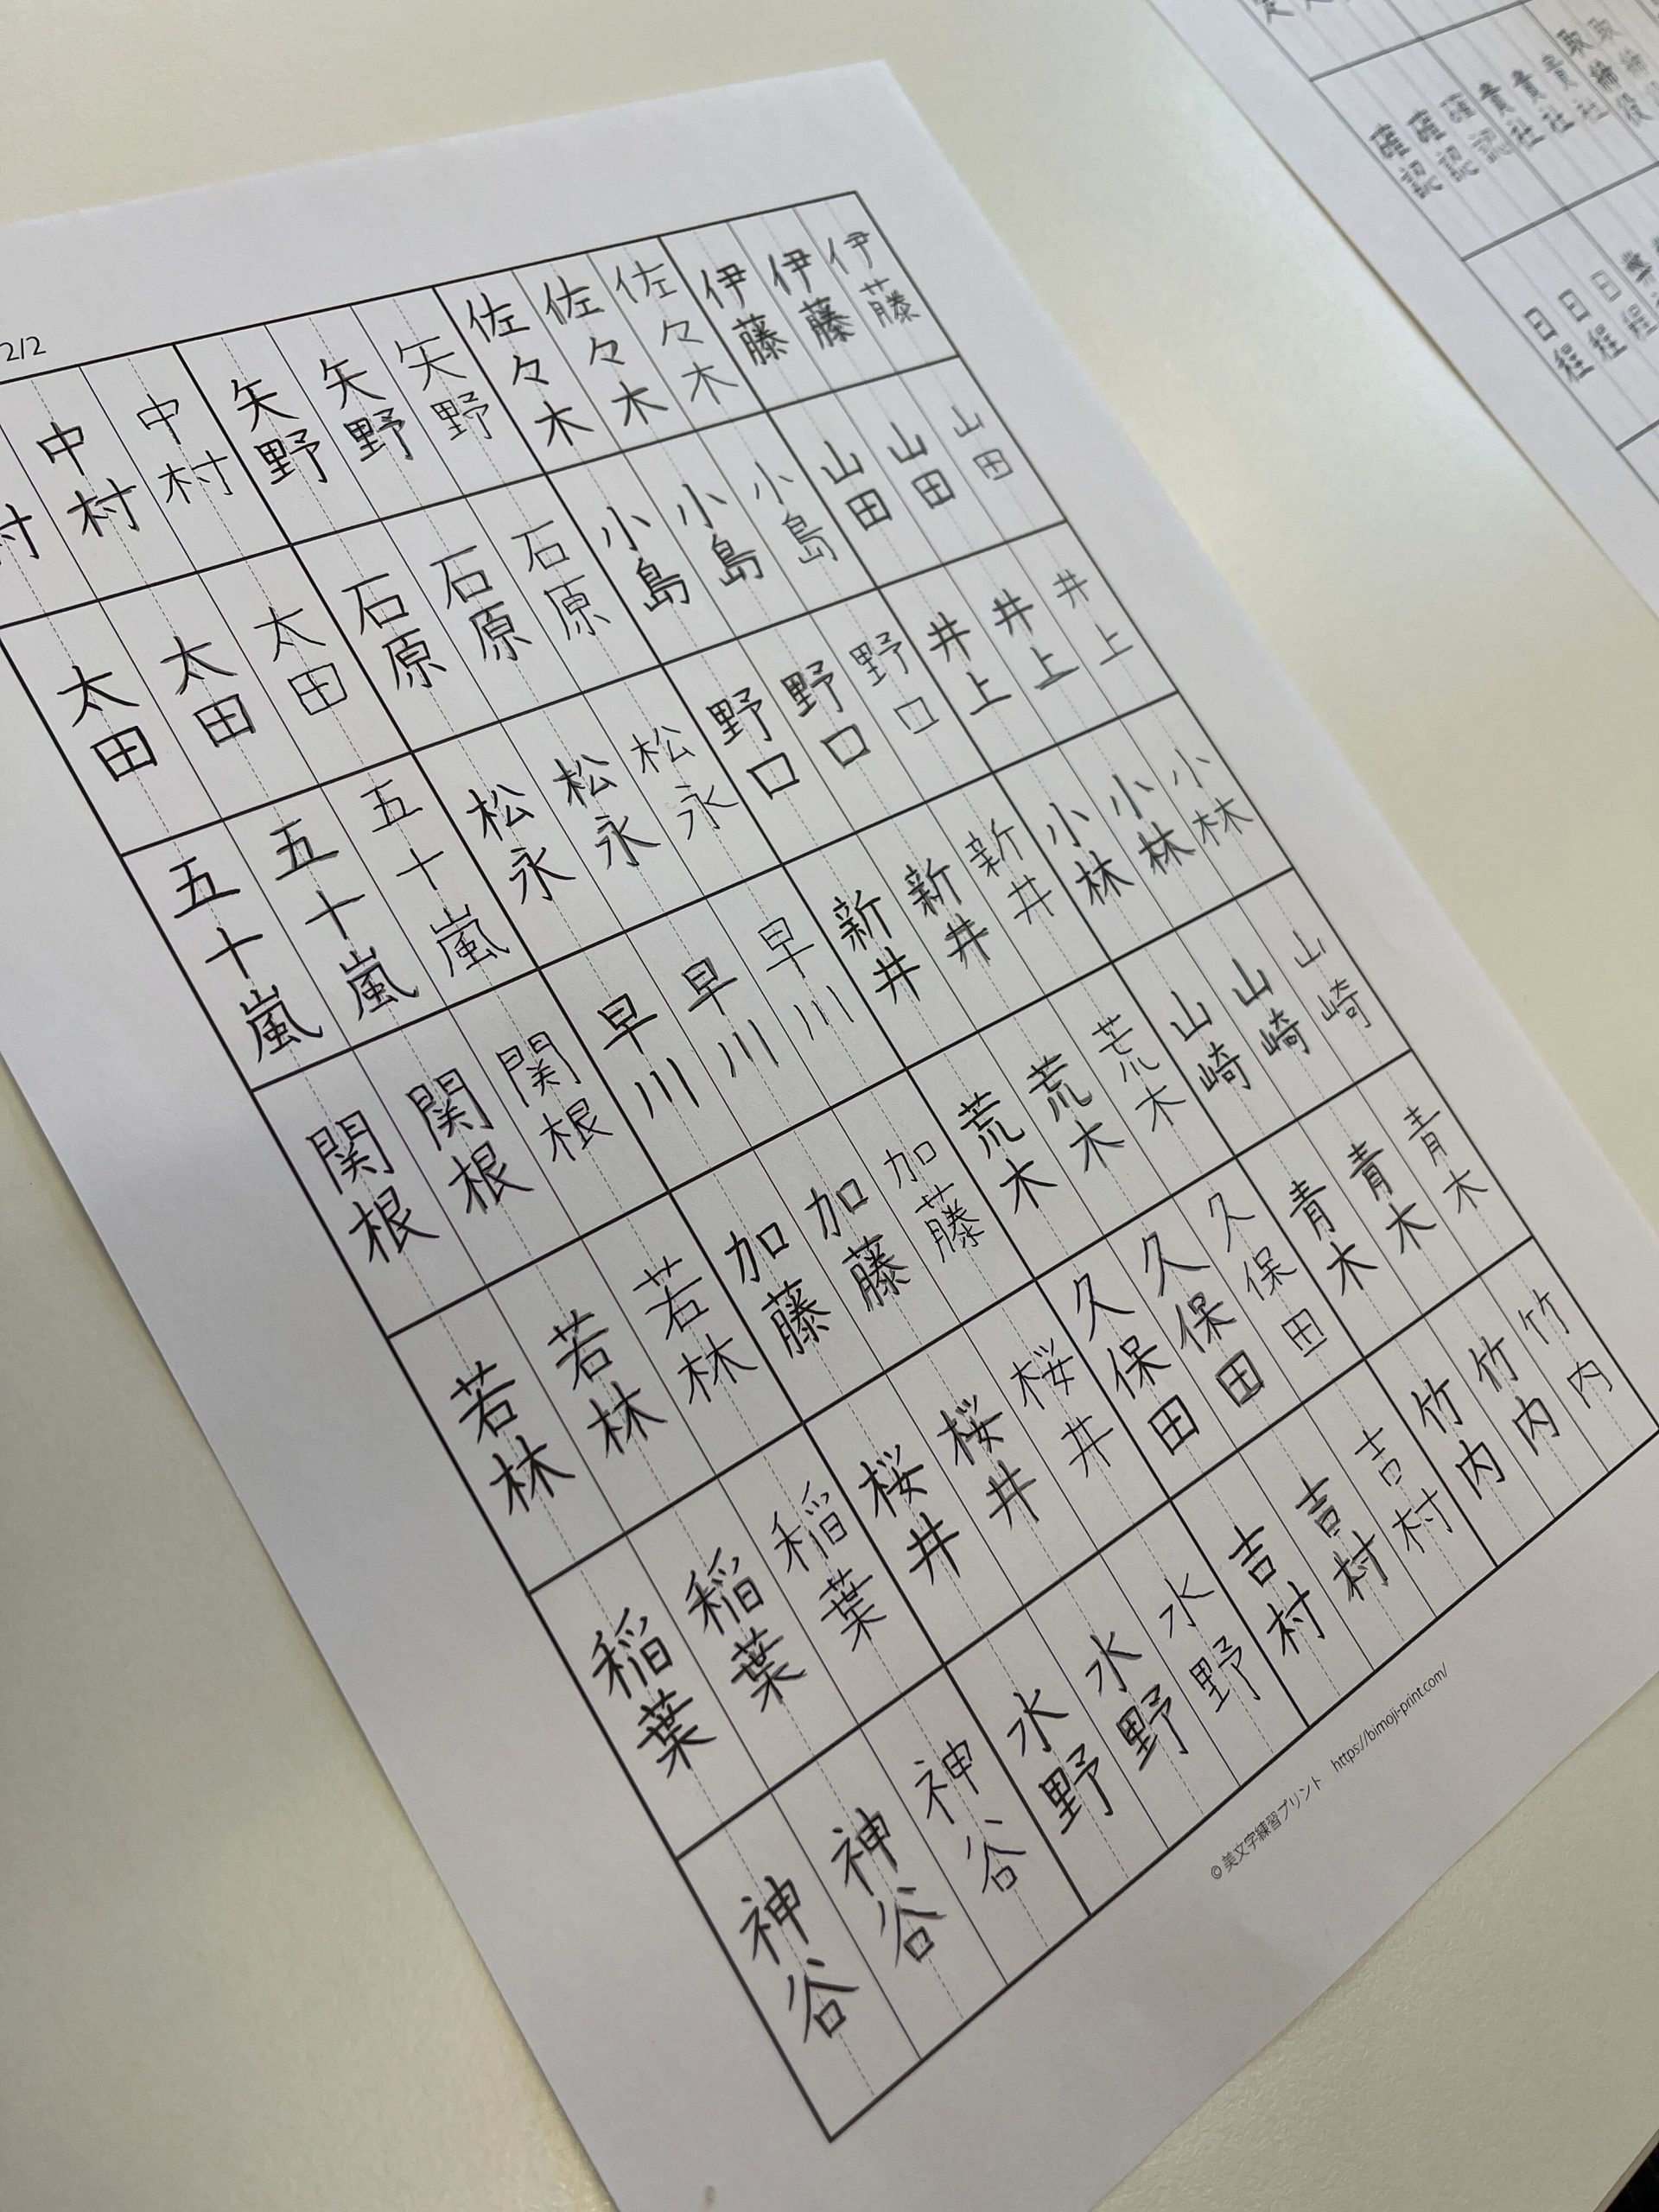 2/2
伊藤
伊藤
伊藤
山田
山田
山田
井上
井上
井上
小林
小林
小林
山崎
山崎
山崎
青木
青木
青木
竹内
竹内
竹内
佐々木
佐々木
佐々木
小島
小島
小島
野口
野口
野口
新井
新井
新井
荒木
荒木
荒木
久保田
久保田
久保田
吉村
吉村
吉村
矢野
矢野
矢野
石原
石原
石原
松永
松永
松永
早川
早川
早川
加藤
加藤
加藤
桜井
桜井
桜井
水野
水野
水野
中村
中村
村
太田
太田
太田
五十嵐
五十嵐
五十嵐
関根
関根
関根
若林
若林
若林
稲葉
稲葉
稲葉
神谷
神谷
神谷
© 美文字練習プリント https://bimoji-print.com/
取締役
取締役
貴社
貴社
貴社
確認
確認
確認
日程
日程
日程